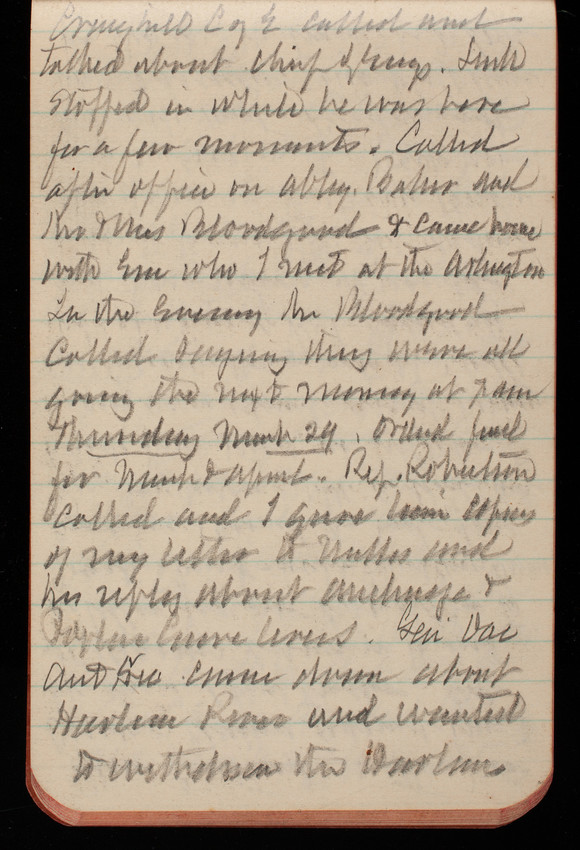 Craighill C of E called and
talked about chief of Engs. Lusk
stopped in while he was here
for a few moments. Called
after office on Abby. Baker and
Mr & Mrs Bloodgood & came home
with Em who I met at the Arlington
In the Evening Mr Bloodgood
called saying they were all
going the next morning at 7 am
Thursday March 29. Ordered fuel
for March & April. Rep. Robertson
called and I gave him copies
of my letter to and
his reply about anchorage &
levees. Gen
and came down about
Harlem River and wanted
to withdraw the Harlem